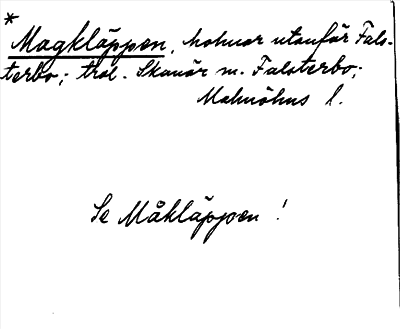 *
Magkläppen, holmar utanför Fals-
terbo; trol. Skanör m. Falsterbo;
Malmöhus l.
Se Måkläppen!